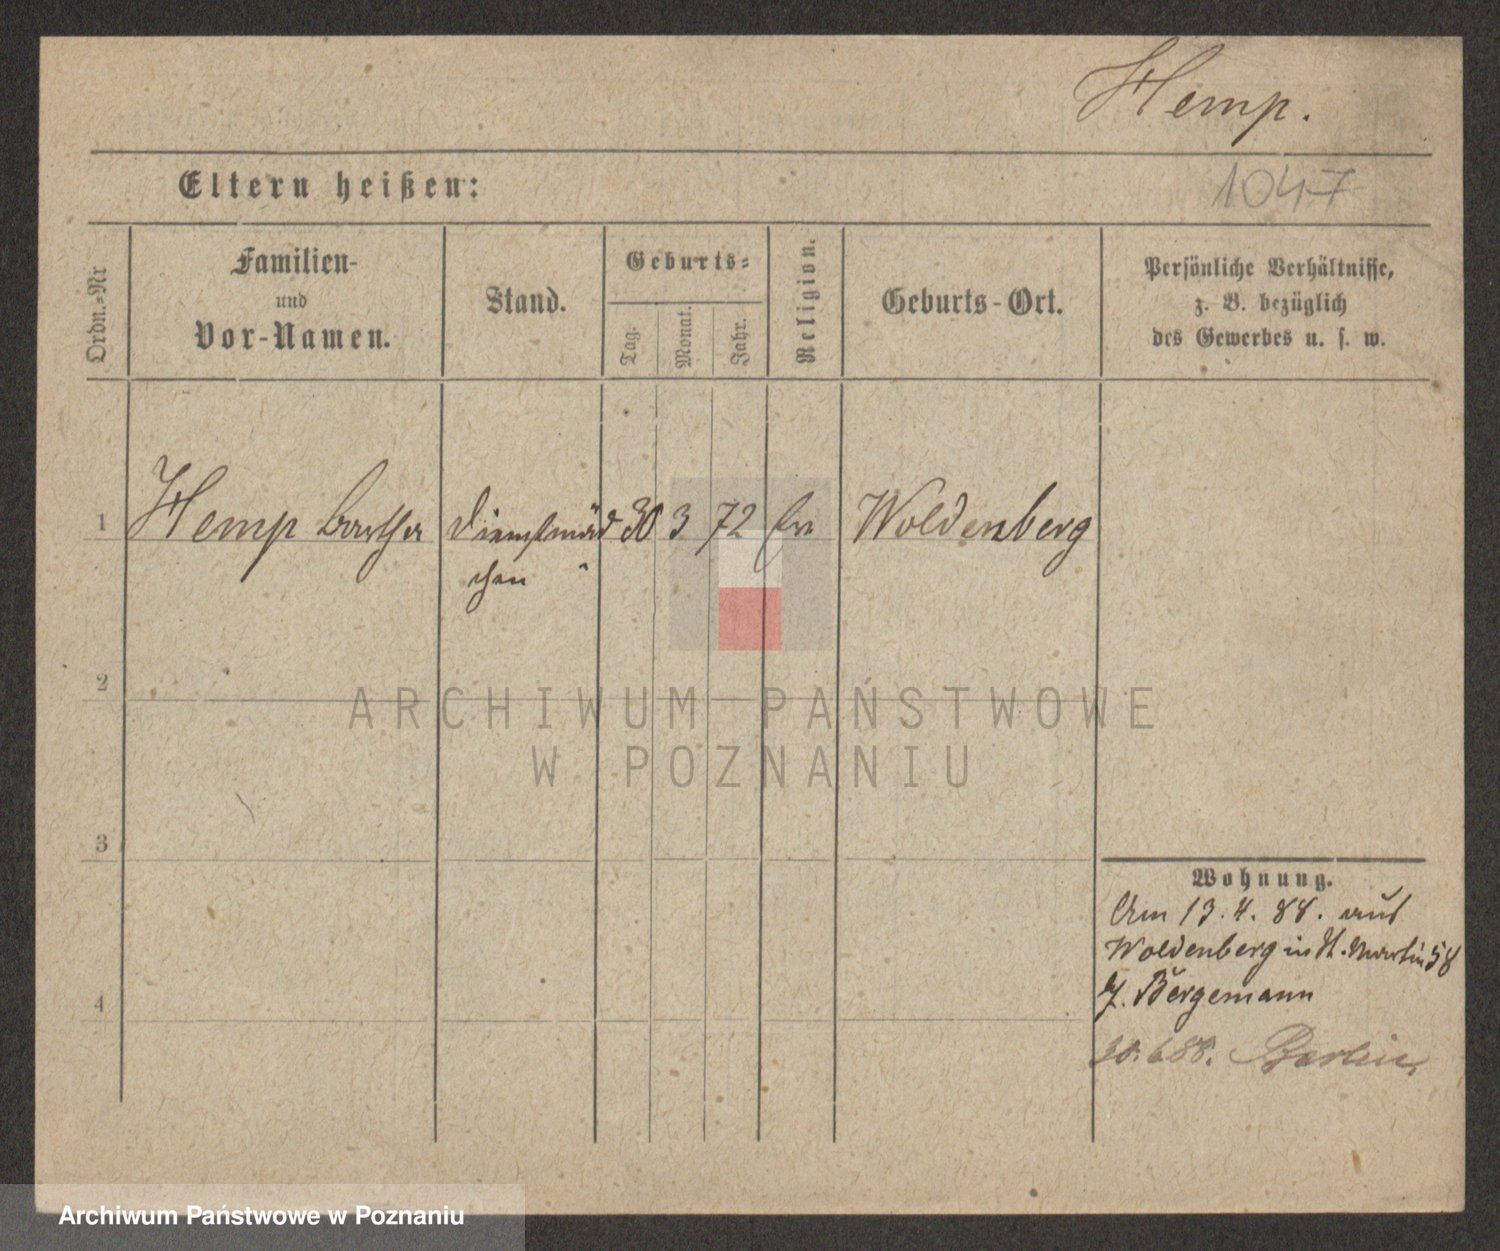 Hemp.
Eltern heißen:
1047
Ordn.-Nr
Familien-
und
Vor-Namen.
Stand.
Geburts-
Tag.
Monat.
Jahr.
Religion.
Geburts-Ort.
Persönliche Verhältnisse,
z. B. bezüglich
des Gewerbes u. s. w.
1 Hemp Bertha Dienstmäd 30 3 72 ev Woldenberg
chen
2
ARCHIWUM PAŃSTWOWE
W POZNANIU
3
Wohnung.
Am 13.4.88. aus
Woldenberg in St. Martin 58
Bergemann
4
30.6 88. Berlin.
Archiwum Państwowe w Poznaniu